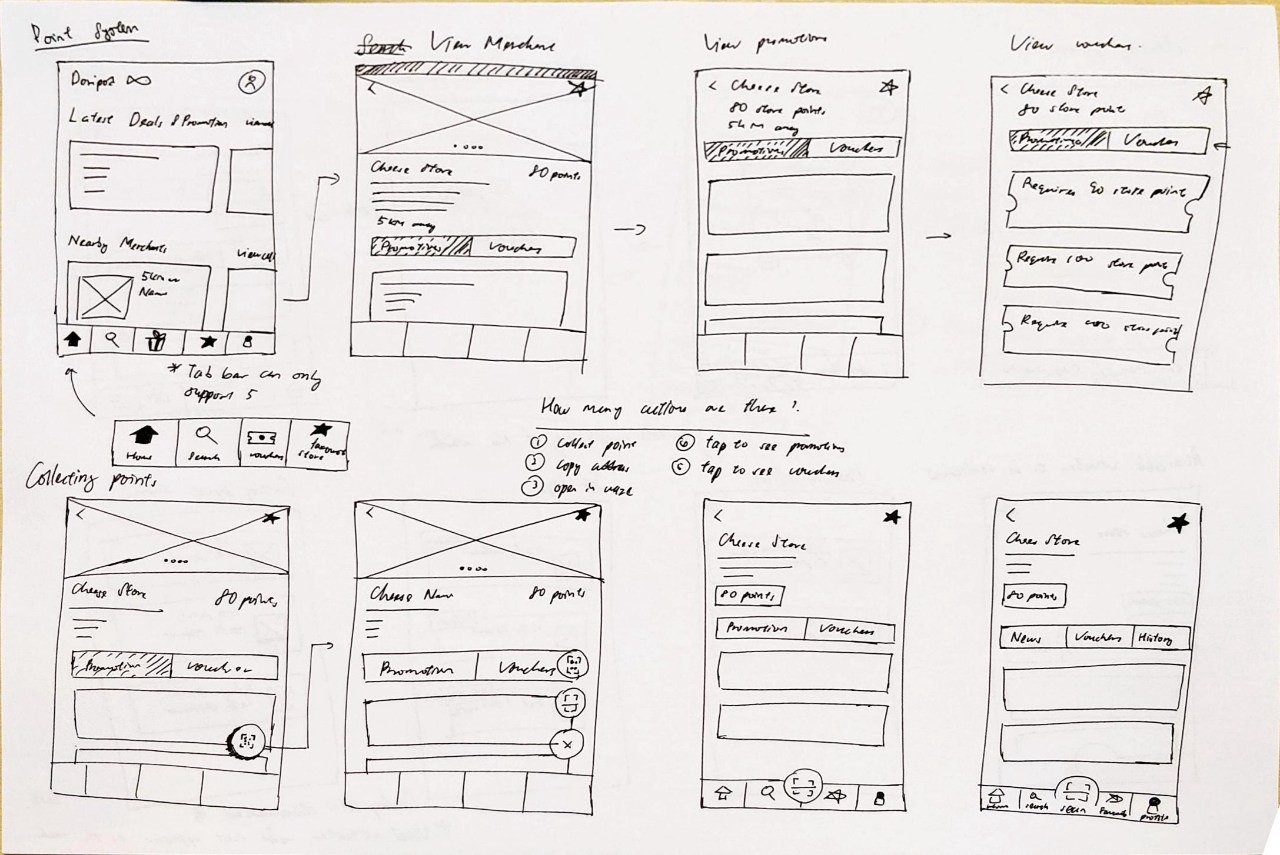 Point System
Search View Merchant
View promotions
View vouchers.
Donipost
Latest Deals & Promotion view all
Nearby Merchants
view all
5km
Name
* Tab bar can only
support 5
Home
Search
vouchers
favourite
store
Cheese Store
80 points
5km away
Promotions
Vouchers
< Cheese Store
80 store points
5km away
Promotions
Vouchers
< Cheese Store
80 store points
Promotions
Vouchers
Requires 90 store point
Require 100 store point
Require 400 store point
How many actions are there?
① Collect point
② copy address
③ open in waze
④ tap to see promotions
⑤ tap to see vouchers
Collecting points
Cheese Store
80 points
Promotion
Voucher
Cheese Name
80 points
Promotion
Vouchers
Cheese Store
80 points
Promotion
Vouchers
Chees Store
80 points
News
Vouchers
History
Home
search
scan
Favourite
profile